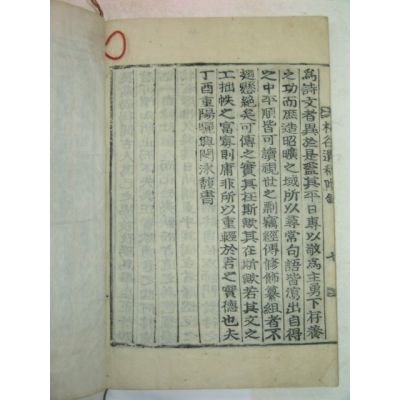 爲詩文者異於是盖其平日專以敬爲主勇下存養
之功而歷造昭曠之域所以尋常句語皆瀉出自得
之中平順皆可讀視世之剽竊經傳修飾纂組者不
趐懸絶矣可傳之實其在斯歟其在斯歟若其文之
工拙帙之富寡則庸非所以重輕於君之實德也夫
丁酉重陽驪興閔泳馥書
谷遺稿附錄
七